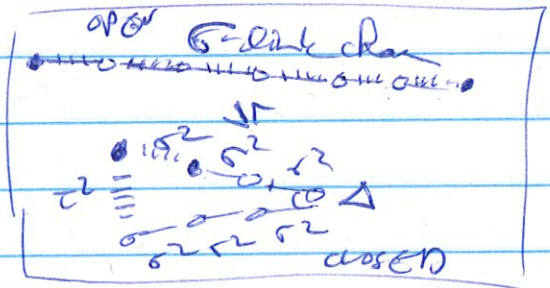 OPEN
σ-link chain
VS
σ² σ² σ²
τ² Δ
σ² σ² σ²
CLOSED